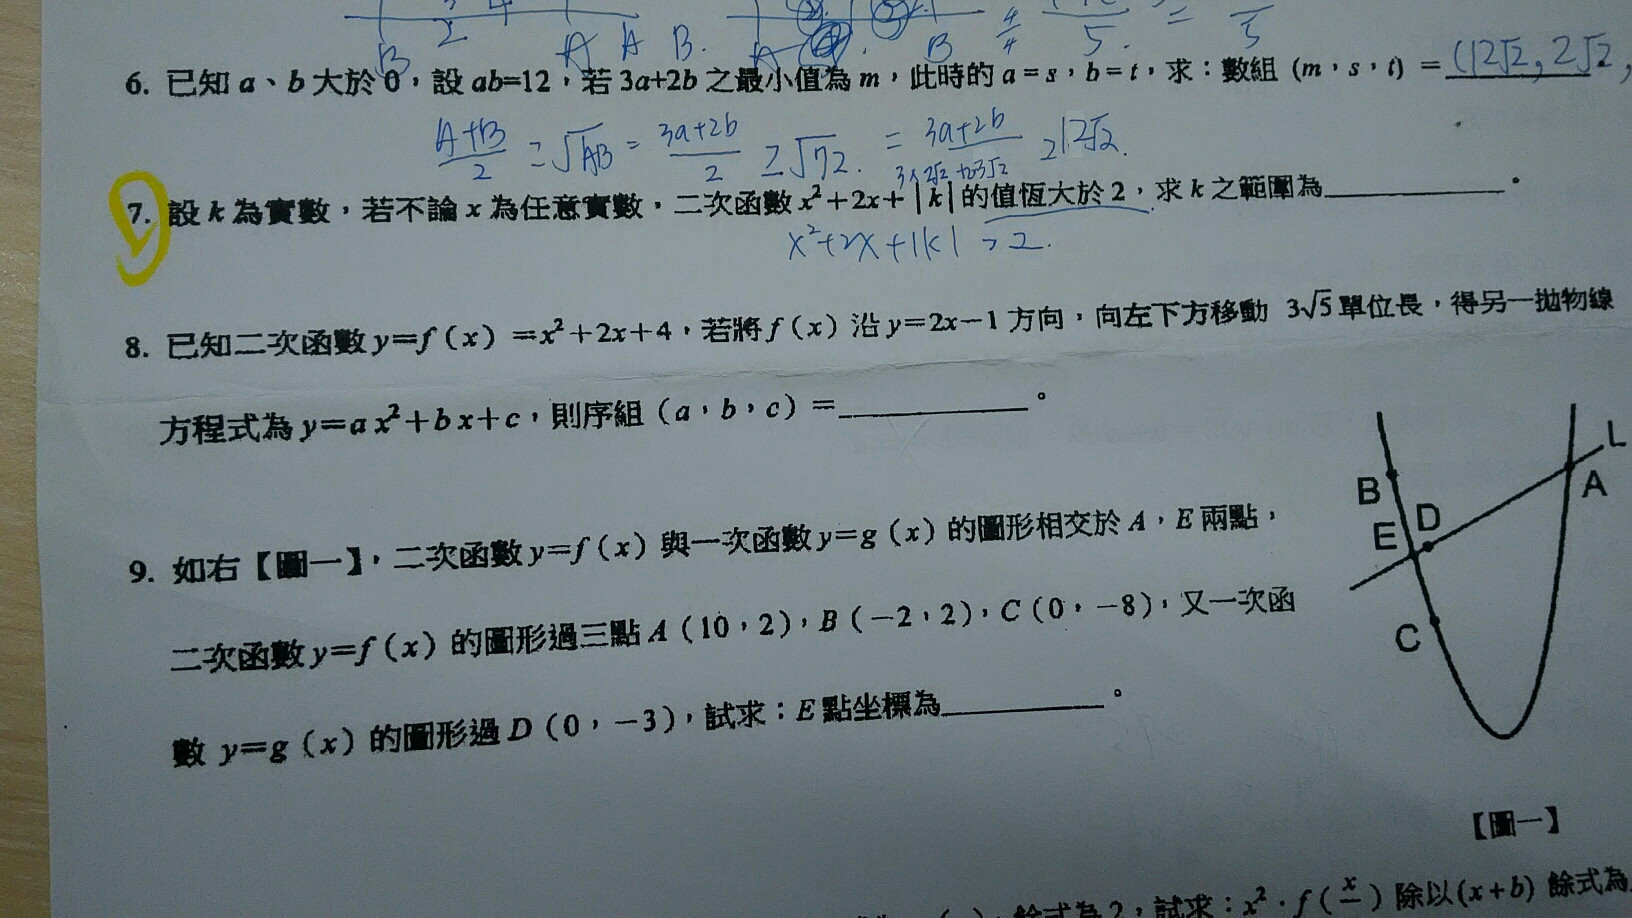 B A A B. A B 5. 5
6. 已知 a、b 大於 0，設 ab=12，若 3a+2b 之最小值為 m，此時的 a=s，b=t，求：數組 (m，s，t) = (12√2, 2√2,
A+B/2 ≥ √AB = 3a+2b/2 ≥ √72. = 3a+2b ≥ 12√2.
7. 設 k 為實數，若不論 x 為任意實數，二次函數 x²+2x+|k| 的值恆大於 2，求 k 之範圍為____________。
x²+2x+|k| > 2.
8. 已知二次函數 y=f（x）=x²+2x+4，若將 f（x）沿 y=2x－1 方向，向左下方移動 3√5 單位長，得另一拋物線
方程式為 y=ax²+bx+c，則序組（a，b，c）=____________。
9. 如右【圖一】，二次函數 y=f（x）與一次函數 y=g（x）的圖形相交於 A，E 兩點，
二次函數 y=f（x）的圖形過三點 A（10，2），B（－2，2），C（0，－8），又一次函
數 y=g（x）的圖形過 D（0，－3），試求：E 點坐標為____________。
L
A
B
D
E
C
【圖一】
餘式為 2，試求：x²．f（x）除以(x+b) 餘式為